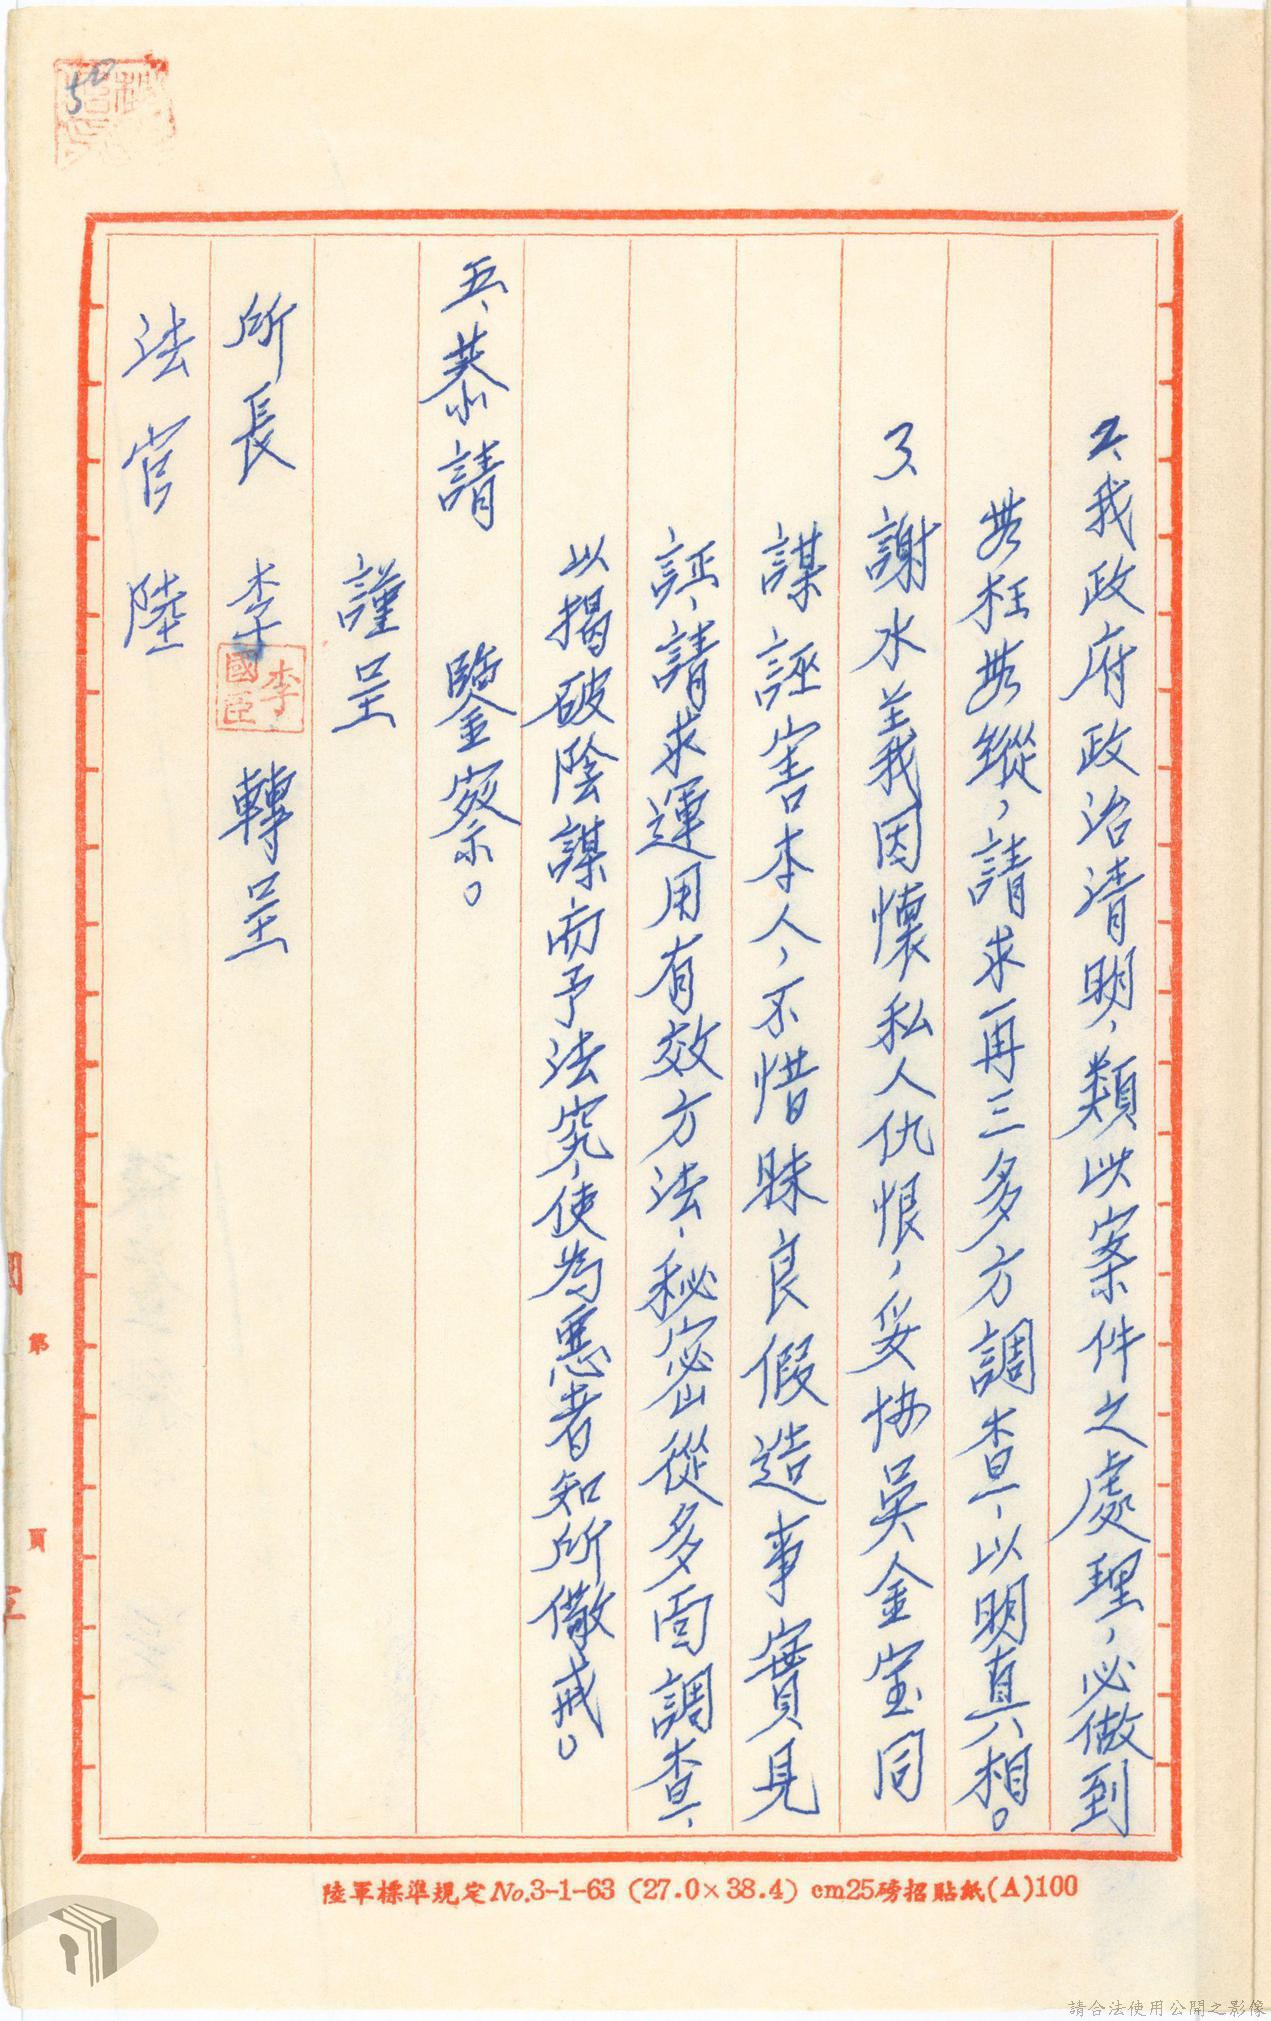 2、我政府政治清明，類此案件之處理，必做到
無枉無縱，請求再三多方調查，以明真相。
3、謝水義因懷私人仇恨，妥協吳金寶同
謀誣害本人，不惜昧良假造事實見
証，請求運用有效方法，秘密從多面調查，
以揭破陰謀而予法究，使為惡者知所儆戒。
五、恭請
鑒察。
謹呈
所長 李 轉呈
李國臣
法官 陸
50
第 頁
陸軍標準規定No.3-1-63 (27.0×38.4) cm25磅招貼紙(A)100
請合法使用公開之影像